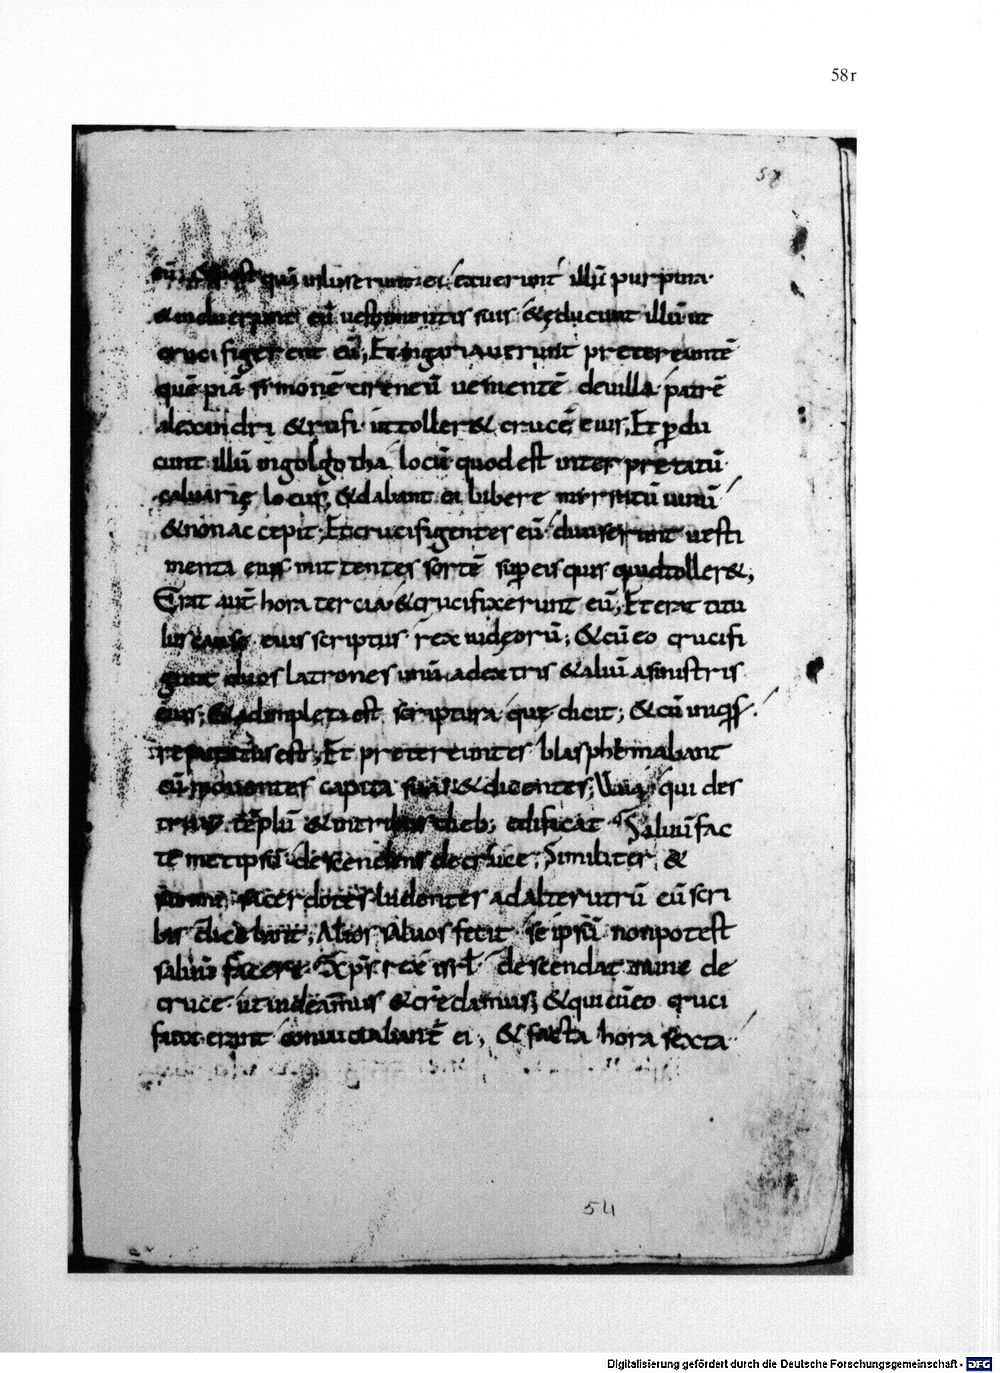 58r
58
eū; & postquā inluserunt ei exuerunt illū purpura·
& induerunt eū uestimentis suis & educunt illū ut
crucifigerent eū; Et angariauerunt pretereuntē
quēpiā simonē cireneū uenientē deuilla patrē
alexandri & rufi· ut toller& crucē eius; Et pdu
cunt illū ingolgotha locū quodest interpretatū·
caluarię locus; & dabant ei bibere mirratū uinū
& non accepit· Et crucifigentes eū· diuiserunt uesti
menta eius mittentes sortē sup eis quis quid toller&;
Erat aut̄ hora tercia· & crucifixerunt eū; Et erat titu
lus causę eius scriptus rex iudęorū; & cū eo crucifi
gunt duos latrones unū adextris & aliū asinistris
eius; & adimpleta est scriptura quę dicit; & cū iniq̄s
reputatus est; Et pretereuntes blasphemabant
eū mouentes capita sua· & dicentes; Uua qui des
truit tēplū & intribus dieb; edificat Saluū fac
temetipsū descendens de cruce; Similiter &
summi sacerdotes ludentes adalterutrū cū scri
bis dicebant; Alios saluos fecit se ipsū non potest
saluū facere· Xp̄s rex isrł descendat nunc de
cruce· ut uideamus & credamus; & qui cū eo cruci
fixi erant conuiciabant̄ ei; & facta hora sexta
54
Digitalisierung gefördert durch die Deutsche Forschungsgemeinschaft - DFG